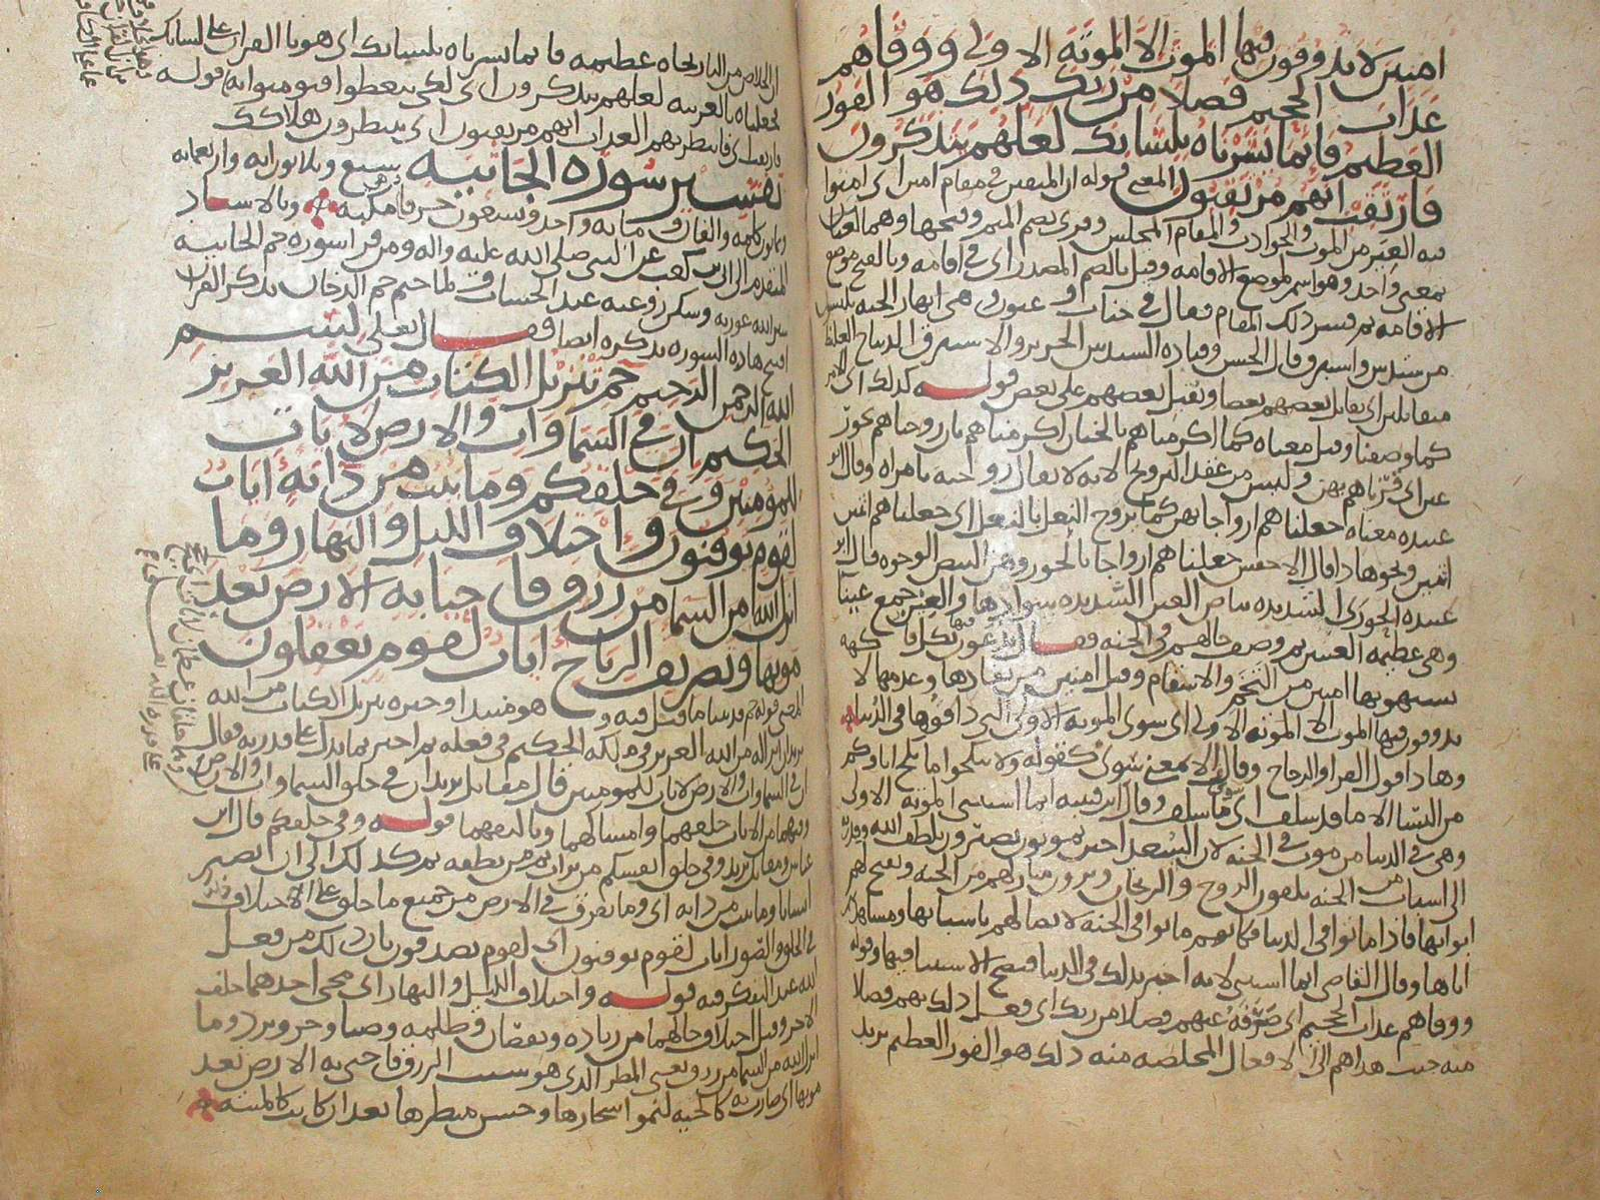 امنين لا يذوقون فيها الموت الا الموتة الاولى ووقاهم
عذاب الجحيم فضلا من ربك ذلك هو الفوز
العظيم فانما يسرناه بلسانك لعلهم يتذكرون
فارتقب انهم مرتقبون المعنى قوله ان المتقين في مقام امين اي امنوا
فيه الغير من الموت والحوادث والمقام المجلس وقرى بضم الميم وفتحها وهما لغتان
بمعنى واحد وهو اسم لموضع الاقامه وقيل بالضم المصدر اي في اقامه وبالفتح موضع
الاقامه ثم فسر ذلك المقام فقال في جنات وعيون وهي انهار الجنه يلبسون
من سندس واستبرق قال الحسن وقتاده السندس الحرير والاستبرق الديباج الغليظ
متقابلين اي يقابل بعضهم بعضا ويقبل بعضهم على بعض قوله كذلك اي الامر
كما وصفنا وقيل معناه كما اكرمناهم بالجنان اكرمناهم بان زوجناهم بحور
عين اي قرناهم بهن وليس من عقد التزويج لانه لا يقال زوجته بامراه وقال ابو
عبيده معناه جعلناهم ازواجا بهن كما يزوج النعل بالنعل اي جعلناهم اثنين
اثنين ونحو هذا قال الاخفش جعلناهم ازواجا بالحور وهن البيض الوجوه قال ابو
عبيده الحورى الشديده بياض العين الشديده سوادها والعين جمع عينا
وهي عظيمه العينين ثم وصف حالهم في الجنه فقال يدعون فيها بكل فاكهه
يشتهونها امنين من التخم والاسقام وقيل امنين من نفادها وعدمها لا
يذوقون فيها الموت الا الموته الاولى اي سوى الموته الاولى التي ذاقوها في الدنيا
وهذا قول الفرا والزجاج وقال الا بمعنى سوى كقوله ولا تنكحوا ما نكح اباؤكم
من النسا الا ما قد سلف اي سوى ما سلف وقال ابن قتيبه انما استثنى الموته الاولى
وهي في الدنيا من موت في الجنه لان السعدا حين يموتون يصيرون بلطف الله وقدرته
الى اسباب من الجنه يلقون الروح والريحان ويرون منازلهم من الجنه وتفتح لهم
ابوابها فاذا ماتوا في الدنيا فكانهم ماتوا في الجنه لاتصالهم باسبابها ومشاهدتهم
اياها وقال القاضي انما استثنى لانه اخبر بذلك في الدنيا فصح الاستثنا فيها وقوله
ووقاهم عذاب الجحيم اي صرفه عنهم فضلا من ربك اي فعل ذلك بهم فضلا
منه حيث هداهم الى الافعال المخلصه منه ذلك هو الفوز العظيم يريد
ان الخلاص من النار نجاه عظيمه فانما يسرناه بلسانك اي هونا القران على لسانك
بجعلناه بالعربيه لعلهم يتذكرون اي لكي يتعظوا فيومنوا به قوله
فارتقب اي فانتظر بهم العذاب انهم مرتقبون اي ينتظرون هلاكك
تفسير سورة الجاثيه سبع وثلاثون ايه واربعمايه
وثمانون كلمه والفان ومايه واحد وتسعون حرفا وهي مكيه وبالاسناد
المتقدم الى ابي بن كعب عن النبي صلى الله عليه واله ومن قرا سوره حم الجاثيه
ستر الله عورته وسكن روعته عند الحساب ولما ختم حم الدخان بذكر القران
افتتح هذه السوره بذكره ايضا فقال تعالى بسم
الله الرحمن الرحيم حم تنزيل الكتاب من الله العزيز
الحكيم ان في السماوات والارض لايات
للمومنين وفي خلقكم وما يبث من دابة ايات
لقوم يوقنون واختلاف الليل والنهار وما
انزل الله من السما من رزق فاحيا به الارض بعد
موتها وتصريف الرياح ايات لقوم يعقلون
المعنى قوله حم قد بينا ما قيل فيه وهو مبتدا وخبره تنزيل الكتاب من الله
يريد ان انزاله من الله العزيز في ملكه الحكيم في فعله ثم اخبر بما يدل على قدرته فقال
ان في السماوات والارض لايات للمومنين قال مقاتل يريد ان في خلق السماوات والارض
وفيهما من الايات خلقهما وامساكهما ومنافعهما قوله وفي خلقكم قال ابن
عباس ومقاتل يريد وفي خلق انفسكم من تراب ثم من نطفه ثم كذلك الى ان يصير
انسانا وما يبث من دابه اي وما يفرق في الارض من جميع ما خلق على الاختلاف
في الخلق والصور ايات لقوم يوقنون اي لقوم يصدقون بان ذلك من فعل
الله عند التفكر فيه قوله واختلاف الليل والنهار اي مجي احدهما خلف
الاخر وقيل اختلاف حالهما من زياده ونقصان وظلمه وضيا وحر وبرد وما
انزل الله من السما من رزق يعني المطر الذي هو سبب الرزق فاحيى به الارض بعد
موتها اي صارت كالحيه لنمو اشجارها وحسن منظرها بعد ان كانت كالميته